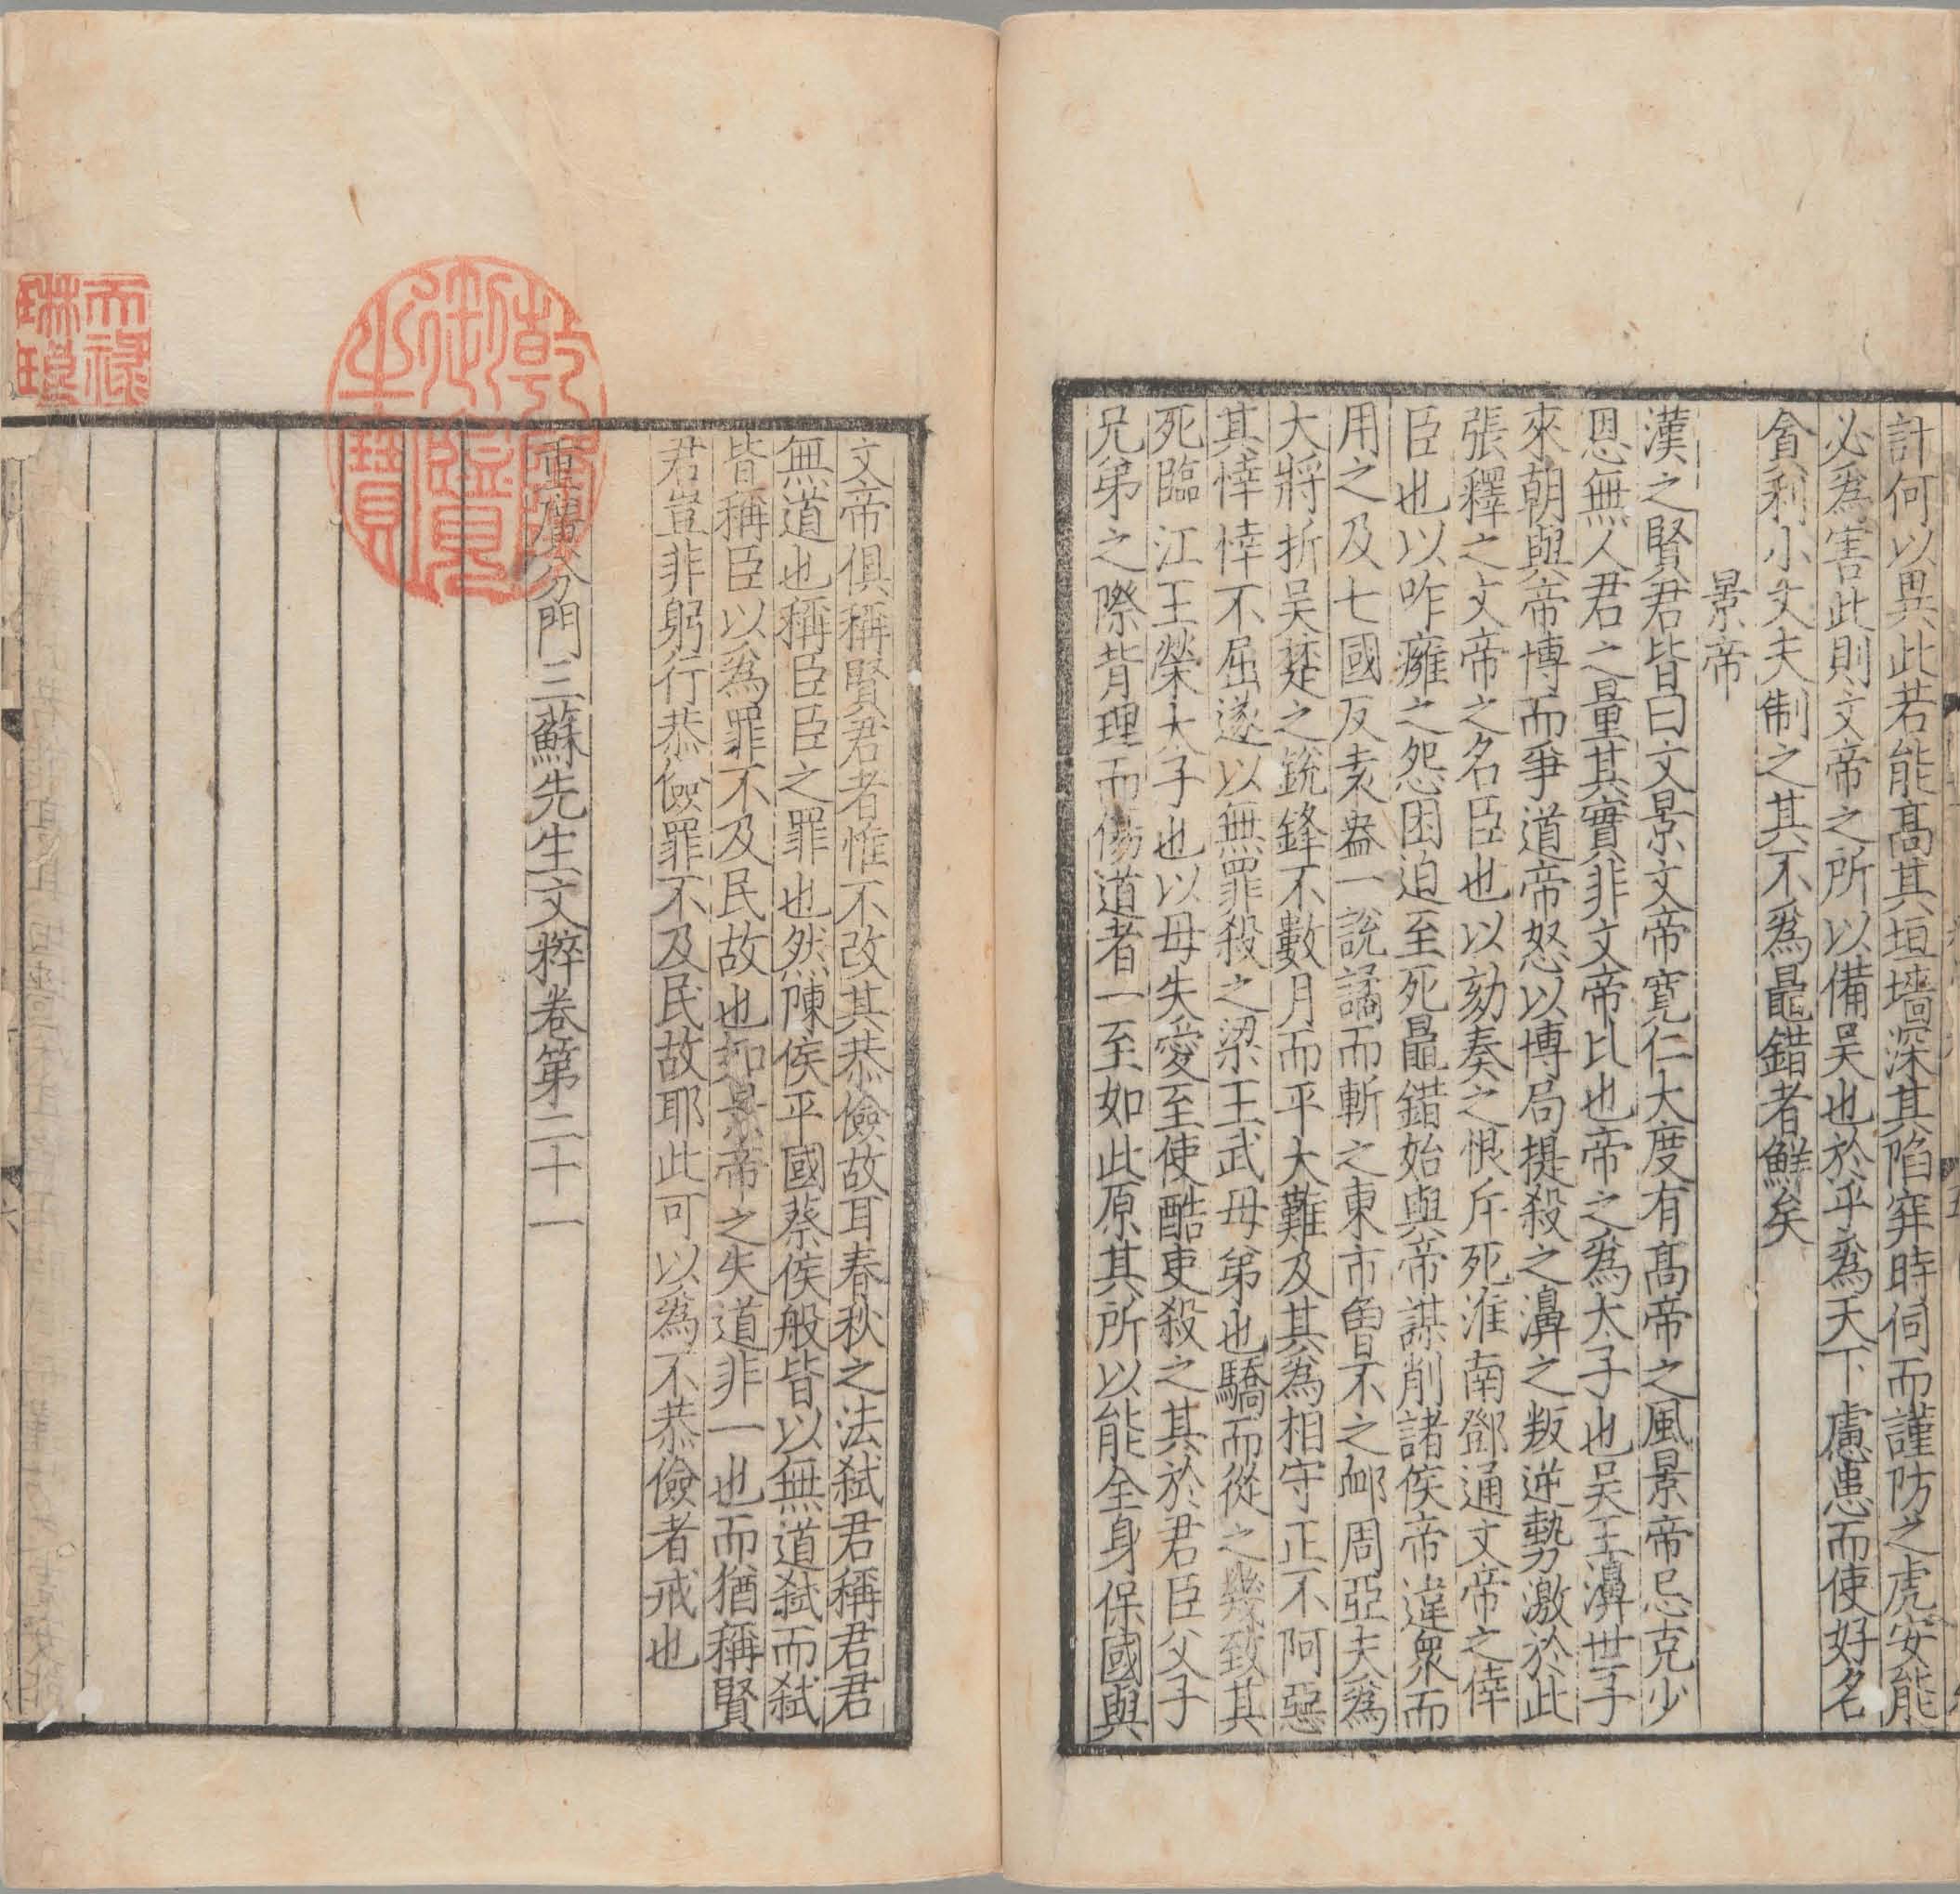 計何以異此若能高其垣墻深其陷穽時伺而謹防之虎安能
必爲害此則文帝之所以備吴也於乎爲天下慮患而使好名
貪利小丈夫制之其不爲鼂錯者鮮矣
景帝
漢之賢君皆曰文景文帝寬仁大度有髙帝之風景帝忌克少
恩無人君之量其實非文帝比也帝之爲太子也吴王濞世子
來朝與帝博而爭道帝怒以博局提殺之濞之叛逆勢激於此
張釋之文帝之名臣也以劾奏之恨斥死淮南鄧通文帝之倖
臣也以吮癰之怨困迫至死鼂錯始與帝謀削諸侯帝違衆而
用之及七國反袁盎一說譎而斬之東市曾不之卹周亞夫爲
大將折吴楚之銳鋒不數月而平大難及其爲相守正不阿惡
其悻悻不屈遂以無罪殺之梁王武母弟也驕而從之幾致其
死臨江王榮太子也以母失愛至使酷吏殺之其於君臣父子
兄弟之際背理而傷道者一至如此原其所以能全身保國與
文帝俱稱賢君者惟不改其恭儉故耳春秋之法弑君稱君君
無道也稱臣臣之罪也然陳侯平國蔡侯般皆以無道弑而弑
皆稱臣以爲罪不及民故也如景帝之失道非一也而猶稱賢
君豈非躬行恭儉罪不及民故耶此可以爲不恭儉者戒也
重廣分門三蘇先生文粹卷第二十一
乾隆御覽之寶
天禄琳琅